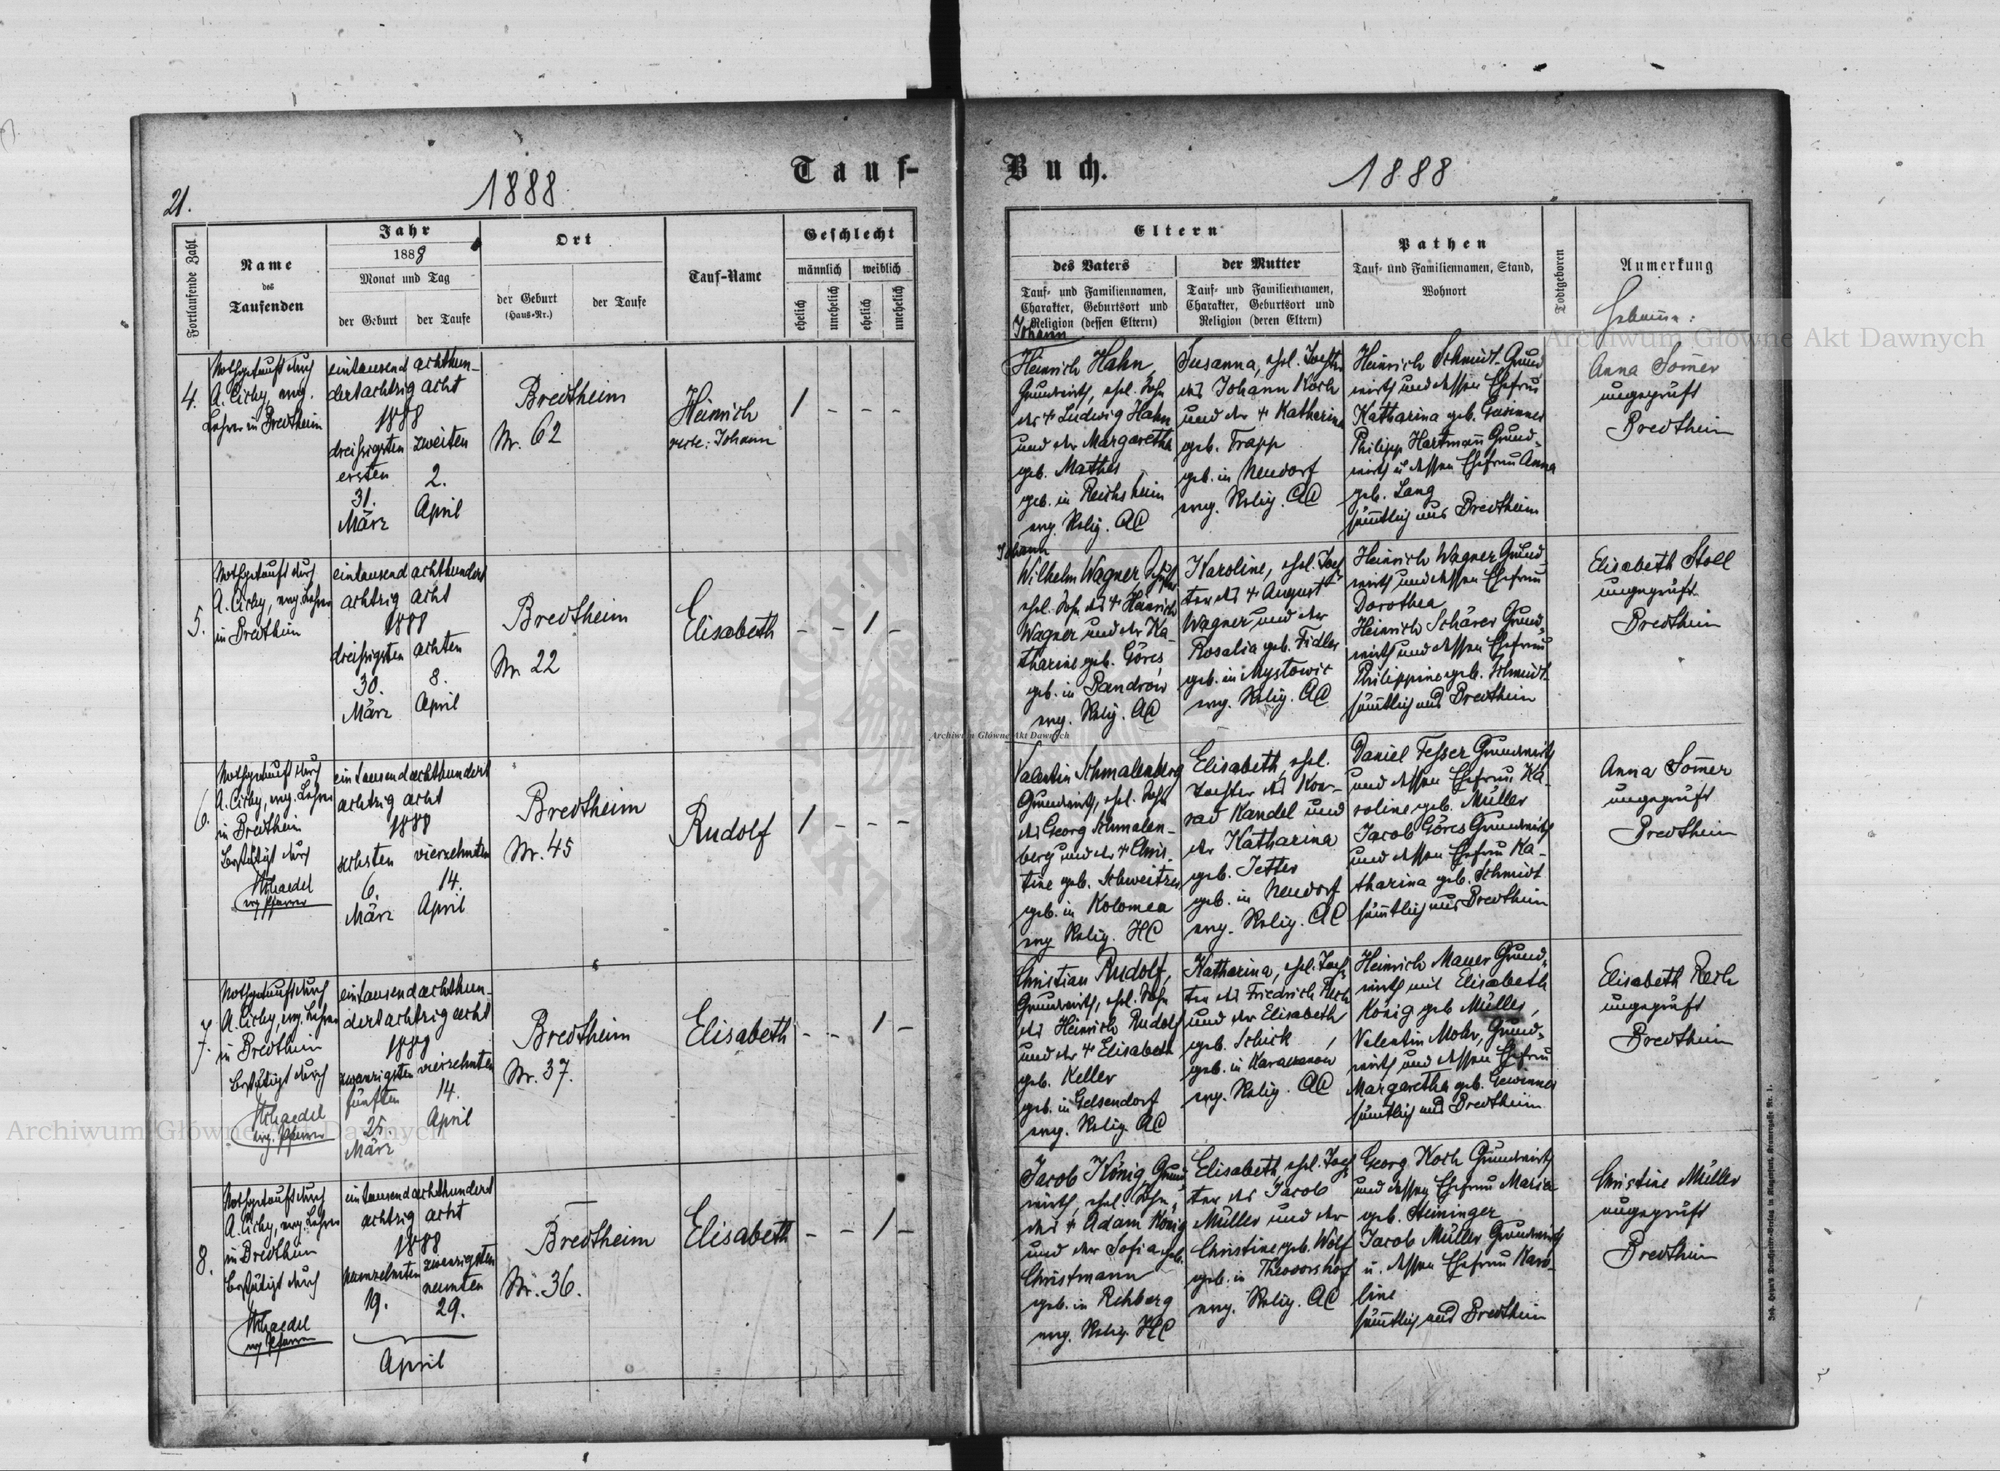 21.
1888
Tauf-
Buch.
1888
Fortlaufende Zahl
Name
des
Taufenden
Jahr
1888
Monat und Tag
der Geburt
der Taufe
Ort
der Geburt
(Haus-Nr.)
der Taufe
Tauf-Name
Geschlecht
männlich
weiblich
ehelich
unehelich
ehelich
unehelich
Eltern
des Vaters
Tauf- und Familiennamen,
Charakter, Geburtsort und
Religion (dessen Eltern)
der Mutter
Tauf- und Familiennamen,
Charakter, Geburtsort und
Religion (deren Eltern)
Pathen
Tauf- und Familiennamen, Stand,
Wohnort
Todtgeboren
Anmerkung
Hebamme:
4.
Nothgetauft durch
A. Cichy, evg.
Lehrer in Bredtheim
eintausend achthun-
dertachtzig acht
1888
dreißigsten zweiten
ersten
31. 2.
März April
Bredtheim
Nr. 62
Heinrich
recte: Johann
1 - - -
Johann
Heinrich Hahn,
Grundwirth, ehel. Sohn
des + Ludwig Hahn
und der Margaretha
geb. Mathes
geb. in Reichsheim
evg. Relig. AC
Susanna, ehel. Tochter
des Johann Koch
und der + Katharina
geb. Trapp
geb. in Neudorf
evg. Relig. AC
Heinrich Schmidt Grund-
wirth und dessen Ehefrau
Katharina geb.
Philipp Hartmann Grund-
wirth u dessen Ehefrau Anna
geb. Lang
sämtlich aus Bredtheim
Anna Somer
ungeprüft
Bredtheim
5.
Nothgetauft durch
A. Cichy, evg. Lehrer
in Bredtheim
eintausend achthundert
achtzig acht
1888
dreißigsten achten
30. 8.
März April
Bredtheim
Nr. 22
Elisabeth
- - 1 -
Johann
Wilhelm Wagner
ehel. Sohn des + Heinrich
Wagner und der Ka-
tharine geb. Göres
geb. in Bandrów
evg. Relig. AC
Karoline, ehel. Toch-
ter des + August
Wagner und der
Rosalia geb. Fidler
geb. in Mystowic
evg. Relig. AC
Heinrich Wagner Grund-
wirth und dessen Ehefrau
Dorothea
Heinrich Schärer Grund-
wirth und dessen Ehefrau
Philippine geb. Schmidt
sämtlich aus Bredtheim
Elisabeth Stoll
ungeprüft
Bredtheim
6.
Nothgetauft durch
A. Cichy, evg. Lehrer
in Bredtheim
Bestätigt durch
evg Pfarrer
eintausend achthundert
achtzig acht
1888
sechsten vierzehnten
6. 14.
März April
Bredtheim
Nr. 45
Rudolf
1 - - -
Valentin Schmalenberg
Grundwirth, ehel. Sohn
des Georg Schmalen-
berg und der + Chris-
tine geb. Schweitzer
geb. in Kolomea
evg Relig. HC
Elisabeth, ehel.
Tochter des Kon-
rad Kandel und
der Katharina
geb. Jetter
geb. in Neudorf
evg. Relig. AC
Daniel Fesser Grundwirth
und dessen Ehefrau Ka-
roline geb. Müller
Jacob Göres Grundwirth
und dessen Ehefrau Ka-
tharina geb. Schmidt
sämtlich aus Bredtheim
Anna Somer
ungeprüft
Bredtheim
7.
Nothgetauft durch
A. Cichy, evg. Lehrer
in Bredtheim
Bestätigt durch
evg. Pfarrer
eintausend achthun-
dertachtzig acht
1888
zwanzigsten vierzehnten
fünften 14.
25. April
März
Bredtheim
Nr. 37.
Elisabeth
- - 1 -
Christian Rudolf,
Grundwirth, ehel. Sohn
des Heinrich Rudolf
und der + Elisabeth
geb. Keller
geb. in Gelsendorf
evg. Relig. AC
Katharina, ehel. Toch-
ter des Friedrich Rech
und der Elisabeth
geb. Schick
geb. in
evg. Relig. AC
Heinrich Mauer Grund-
wirth mit Elisabeth
König geb Müller,
Valentin Mohr, Grund-
wirth und dessen Ehefrau
Margaretha geb.
sämtlich aus Bredtheim
Elisabeth Rech
ungeprüft
Bredtheim
8.
Nothgetauft durch
A. Cichy, evg. Lehrer
in Bredtheim
Bestätigt durch
evg Pfarrer
eintausend achthundert
achtzig acht
1888
neunzehnten zwanzigsten
neunten
19. 29.
April
Bredtheim
Nr. 36.
Elisabeth
- - 1 -
Jacob König, Grund-
wirth, ehel. Sohn
des + Adam König
und der Sofia geb.
Christmann
geb. in Rehberg
evg. Relig. HC
Elisabeth, ehel. Toch-
ter des Jacob
Müller und der
Christine geb. Wolf
geb. in Theodorshof
evg. Relig. AC
Georg Koch Grundwirth
und dessen Ehefrau Maria
geb. Heininger
Jacob Müller Grundwirth
u. dessen Ehefrau Karo-
line
sämtlich aus Bredtheim
Christine Müller
ungeprüft
Bredtheim
Archiwum Główne Akt Dawnych
Archiwum Główne Akt Dawnych
Archiwum Główne Akt Dawnych